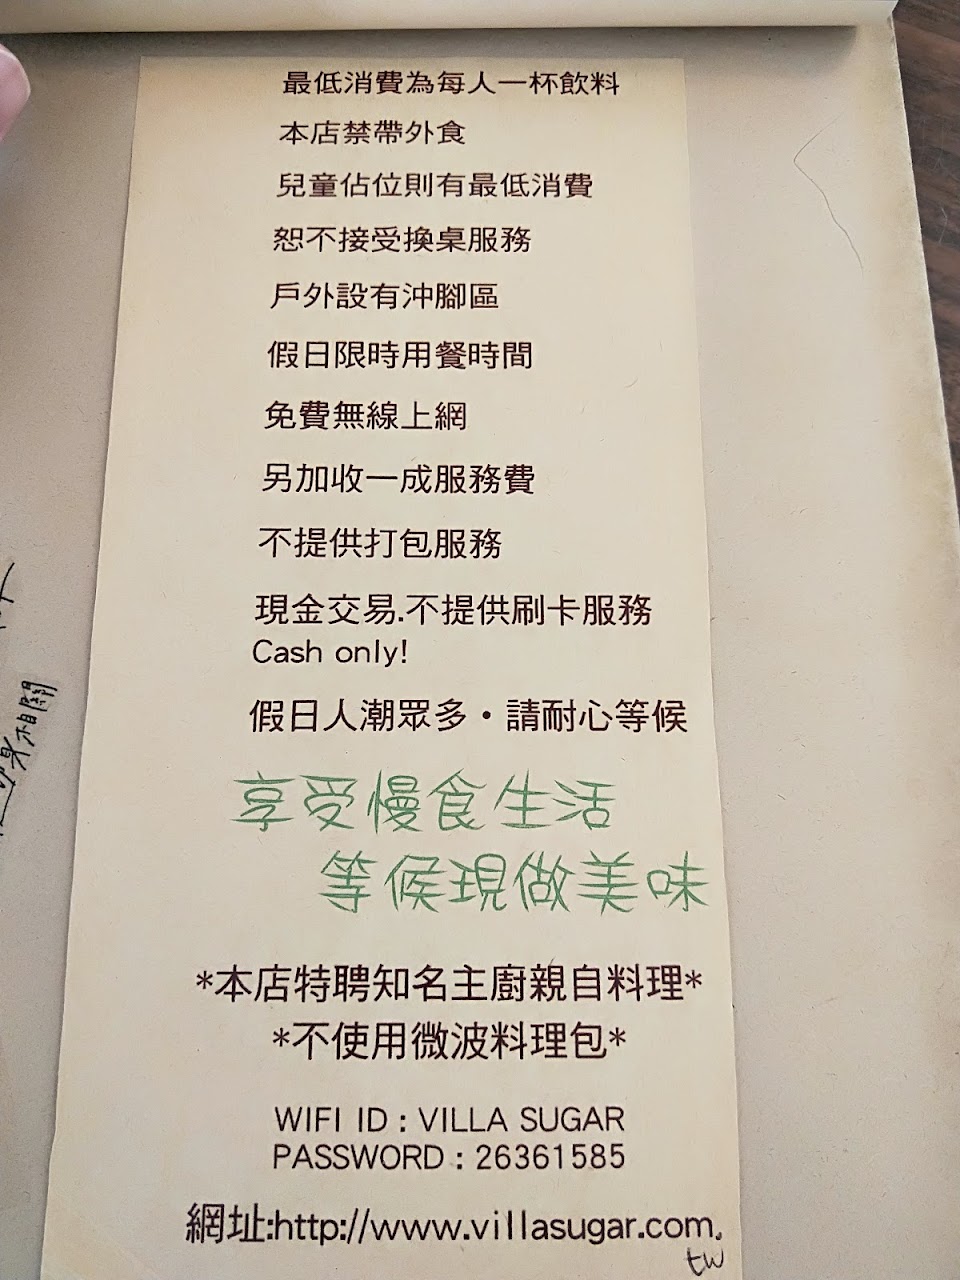 最低消費為每人一杯飲料
本店禁帶外食
兒童佔位則有最低消費
恕不接受換桌服務
戶外設有沖腳區
假日限時用餐時間
免費無線上網
另加收一成服務費
不提供打包服務
現金交易.不提供刷卡服務
Cash only!
假日人潮眾多・請耐心等候
享受慢食生活
等候現做美味
*本店特聘知名主廚親自料理*
*不使用微波料理包*
WIFI ID : VILLA SUGAR
PASSWORD : 26361585
網址:http://www.villasugar.com.
tw
相關